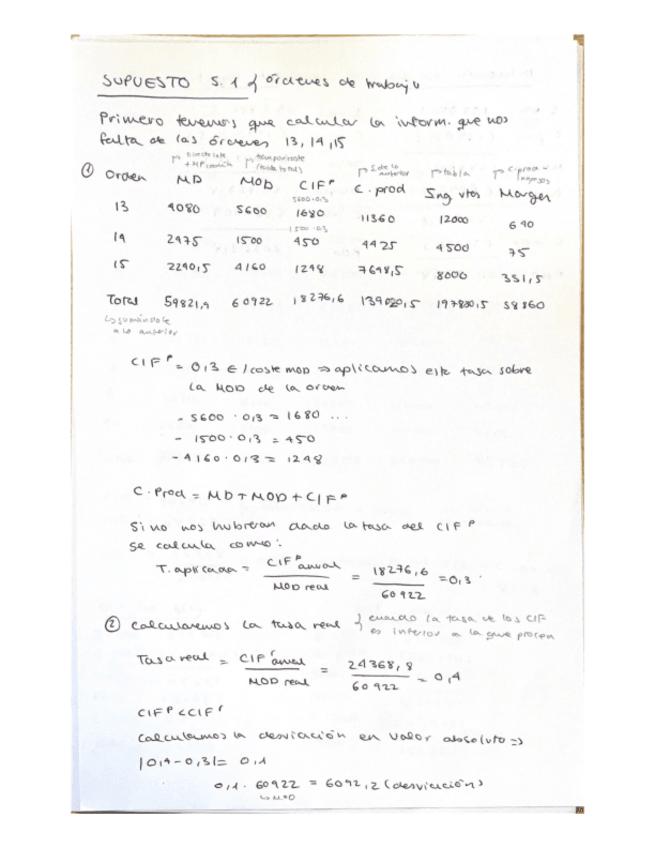 SUPUESTO 5.1 { órdenes de trabajo
Primero tenemos que calcular la inform. que nos
falta de las órdenes 13, 14, 15
① Orden MD MOD CIFᴾ C. prod Ing vtas Margen
5600·0,3
13 4080 5600 1680 11360 12000 640
1500·0,3
14 2475 1500 450 4425 4500 75
15 2240,5 4160 1248 7648,5 8000 351,5
Total 59821,9 60922 18276,6 139020,5 197880,5 58860
↳ sumándole
a lo anterior
CIFᴾ = 0,3 €/coste MOD ⇒ aplicamos esta tasa sobre
la MOD de la orden
- 5600 · 0,3 = 1680 ...
- 1500 · 0,3 = 450
- 4160 · 0,3 = 1248
C. Prod = MD + MOD + CIFᴾ
Si no nos hubieran dado la tasa del CIFᴾ
se calcula como:
T. aplicada = CIFᴾ anual / MOD real = 18276,6 / 60922 = 0,3
② Calcularemos la tasa real { cuando la tasa de los CIF
es inferior a la que
Tasa real = CIFʳ anual / MOD real = 24368,8 / 60922 = 0,4
CIFᴾ < CIFʳ
Calculamos la desviación en valor absoluto ⇒
|0,4 - 0,3| = 0,1
0,1 · 60922 = 6092,2 (desviación)
↳ MOD